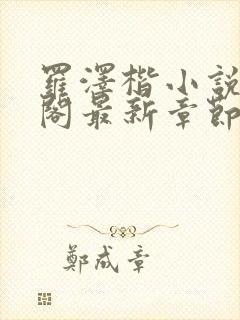 羅澤楷小說
閣最新章節
鄭成章